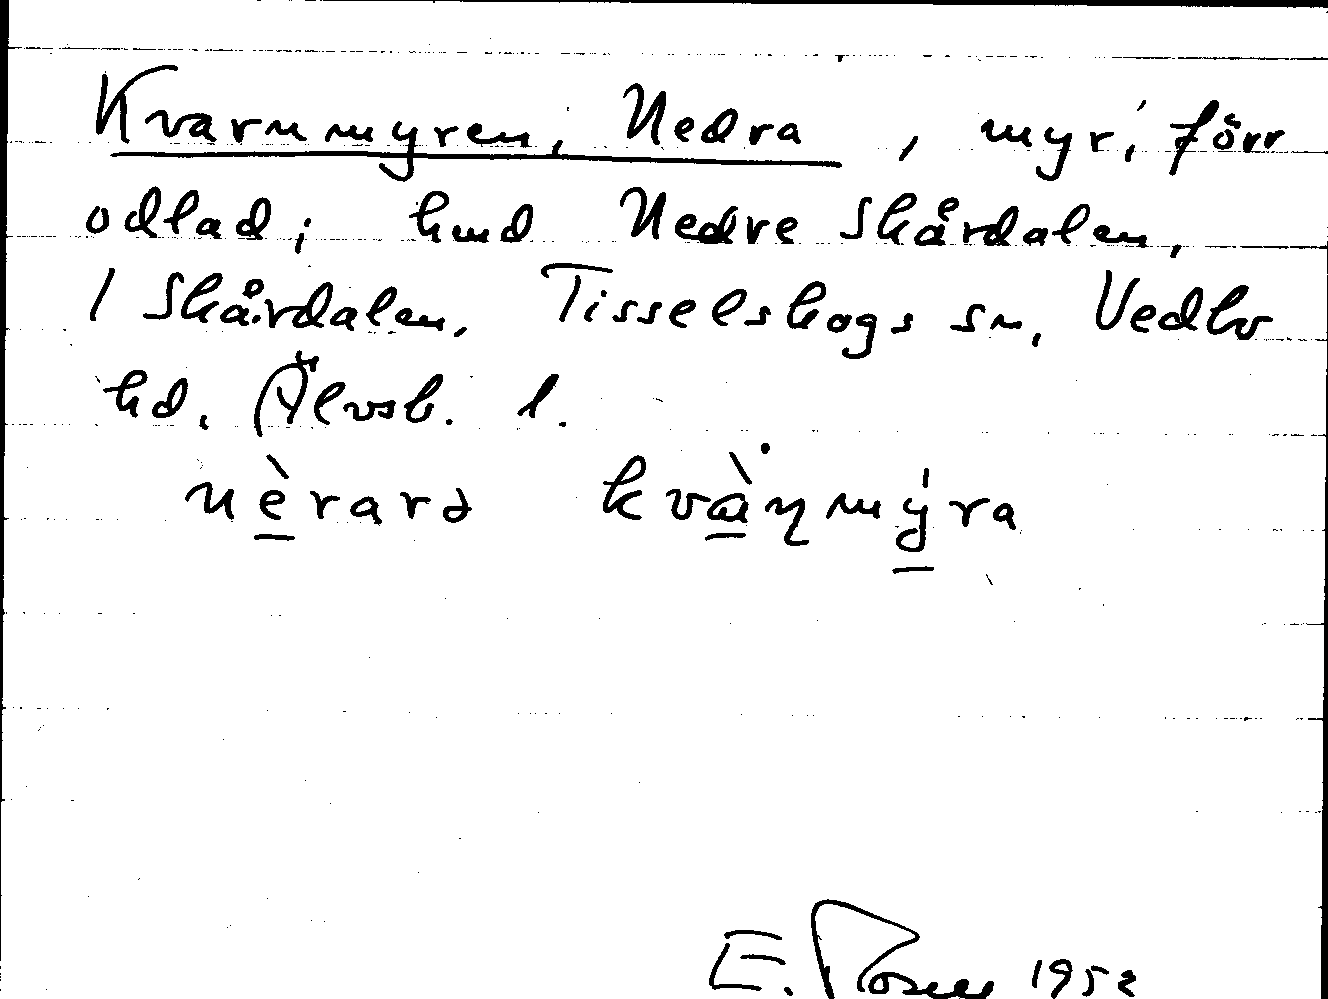 Kvarnmyren, Nedra, myr, förr
odlad; hmd Nedre Skårdalen,
1 Skårdalen, Tisselskogs sn, Vedbo
hd, Älvsb. l.
nèrarə kvàɳmýra
E. 1952